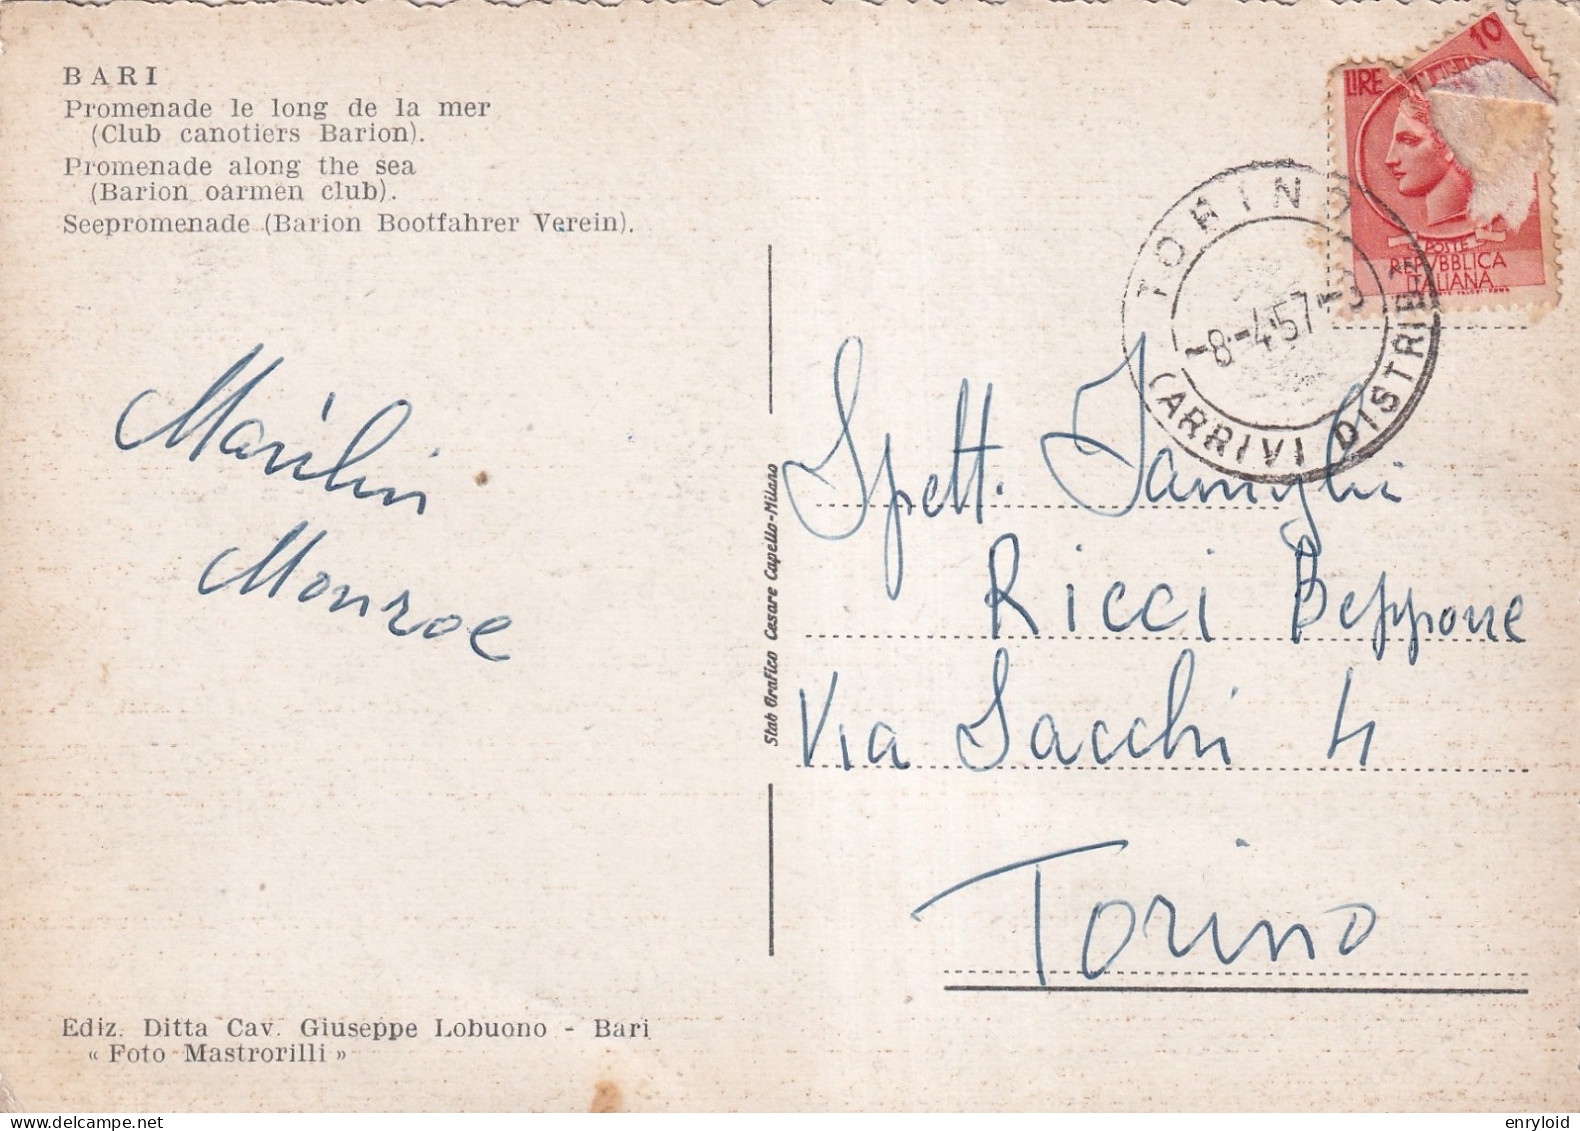 BARI
Promenade le long de la mer
(Club canotiers Barion).
Promenade along the sea
(Barion oarmen club).
Seepromenade (Barion Bootfahrer Verein).
Marilin
Monroe
Ediz. Ditta Cav. Giuseppe Lobuono - Bari
« Foto Mastrorilli »
Stab Grafico Cesare Capello-Milano
LIRE 10
POSTE
REPVBBLICA
ITALIANA
TORINO
-8.-4.57-
(ARRIVI DISTRIB
Spett. Famiglia
Ricci Beppone
Via Sacchi 4
Torino
enryloid
delcampe.net